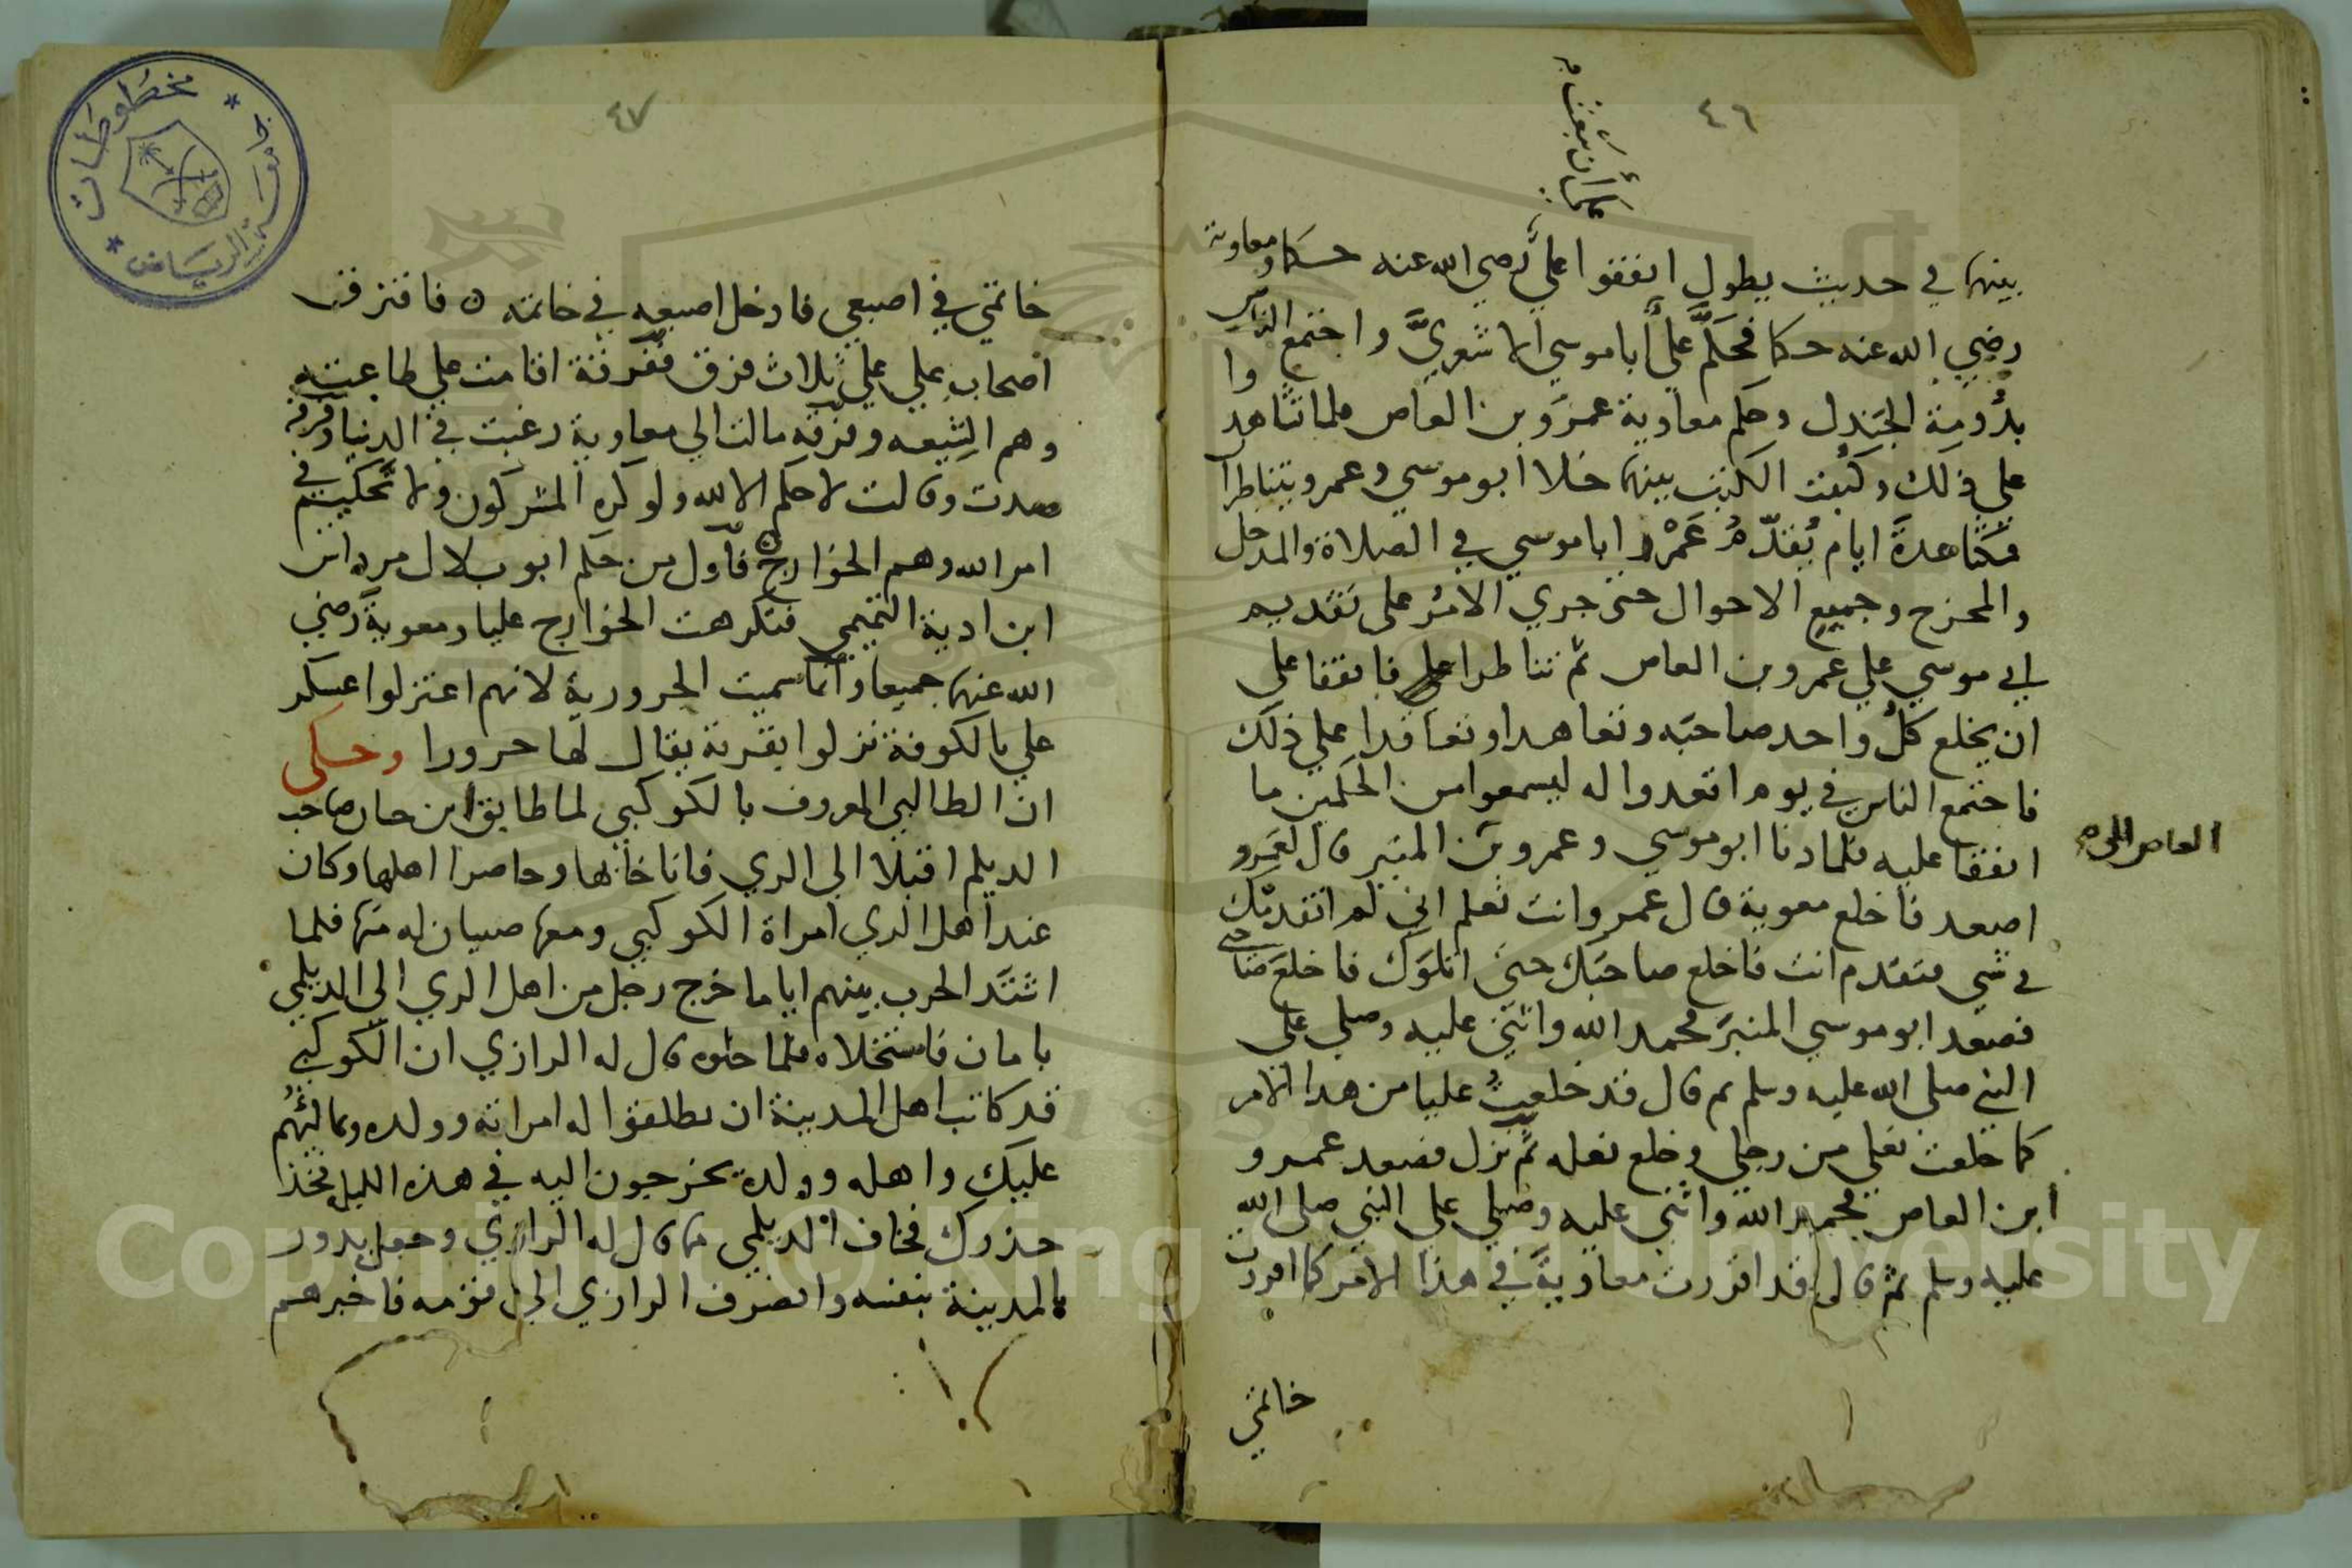 ٤٦
علي أن يبعث
بينهما في حديث يطول اتفقوا علي رضي الله عنه حكما ومعاوية
رضي الله عنه حكما فحكم علي أبا موسي الاشعري واجتمع الناس وا
بدومة الجندل وحكم معاوية عمرو بن العاص فلما تشاهدا
علي ذلك وكتبت الكتب بينهما خلا ابو موسي وعمرو يتناظرا
فمكثا عدة ايام يقدم عمرو ابا موسي في الصلاة والمدخل
والمخرج وجميع الاحوال حتى جري الامر على تقديم
ابي موسي علي عمرو بن العاص ثم تناظرا فاتفقا علي
ان يخلع كل واحد صاحبه وتعاهدا وتعاقدا علي ذلك
فاجتمع الناس في يوم اتعدوا له ليسمعوا من الحكمين ما
اتفقا عليه فلما دنا ابو موسي وعمرو من المنبر قال لعمرو
العاص
اصعد فاخلع معوية قال عمرو انت تعلم اني لم اتقدمك
في شي فتقدم انت فاخلع صاحبك حتى اتلوك فاخلع صاحبي
فصعد ابو موسي المنبر فحمد الله واثنى عليه وصلي علي
النبي صلى الله عليه وسلم ثم قال قد خلعت عليا من هذا الامر
كما خلعت نعلي من رجلي وخلع نعله ثم نزل فصعد عمرو
ابن العاص فحمد الله واثنى عليه وصلي علي النبي صلى الله
عليه وسلم ثم قال قد اقررت معاوية في هذا الامر كما اقررت
خاتمي
٤٧
خاتمي في اصبعي فادخل اصبعه في خاتمه ن فافترق
اصحاب علي علي ثلاث فرق ففرقة اقامت علي طاعته
وهم الشيعه وفرقه مالت الي معاوية رغبت في الدنيا وفرقه
وقالت لا حكم الا لله ولو كره المشركون ولا تحكيم في
امر الله وهم الخوارج فاول من حكم ابو بلال مرداس
ابن ادية التميمي فتكرهت الخوارج عليا ومعوية رضي
الله عنهما جميعا وانما سميت الحرورية لانهم اعتزلوا عسكر
علي بالكوفة نزلوا بقرية يقال لها حرورا وحكى
ان الطالبي المعروف بالكوكبي لما طابق ابن حسان صاحب
الديلم اقبلا الى الري فاناخا بها وحاصرا اهلها وكان
عند اهل الري امراة الكوكبي ومعها صبيان له منها فلما
اشتد الحرب بينهم اياما خرج رجل من اهل الري الى الديلمي
بامان فاستخلاه فلما خلوه قال له الرازي ان الكوكبي
قد كاتب اهل المدينة ان يطلقوا له امراته وولده ويمالئهم
عليك واهله وولده يخرجون اليه في هذه الليلة فخذ
حذرك فخاف الديلمي مما قال له الرازي وجعل يدور
بالمدينة بنفسه وانصرف الرازي الى قومه فاخبرهم
مخطوطات
جامعة الرياض
Copyright © King Saud University